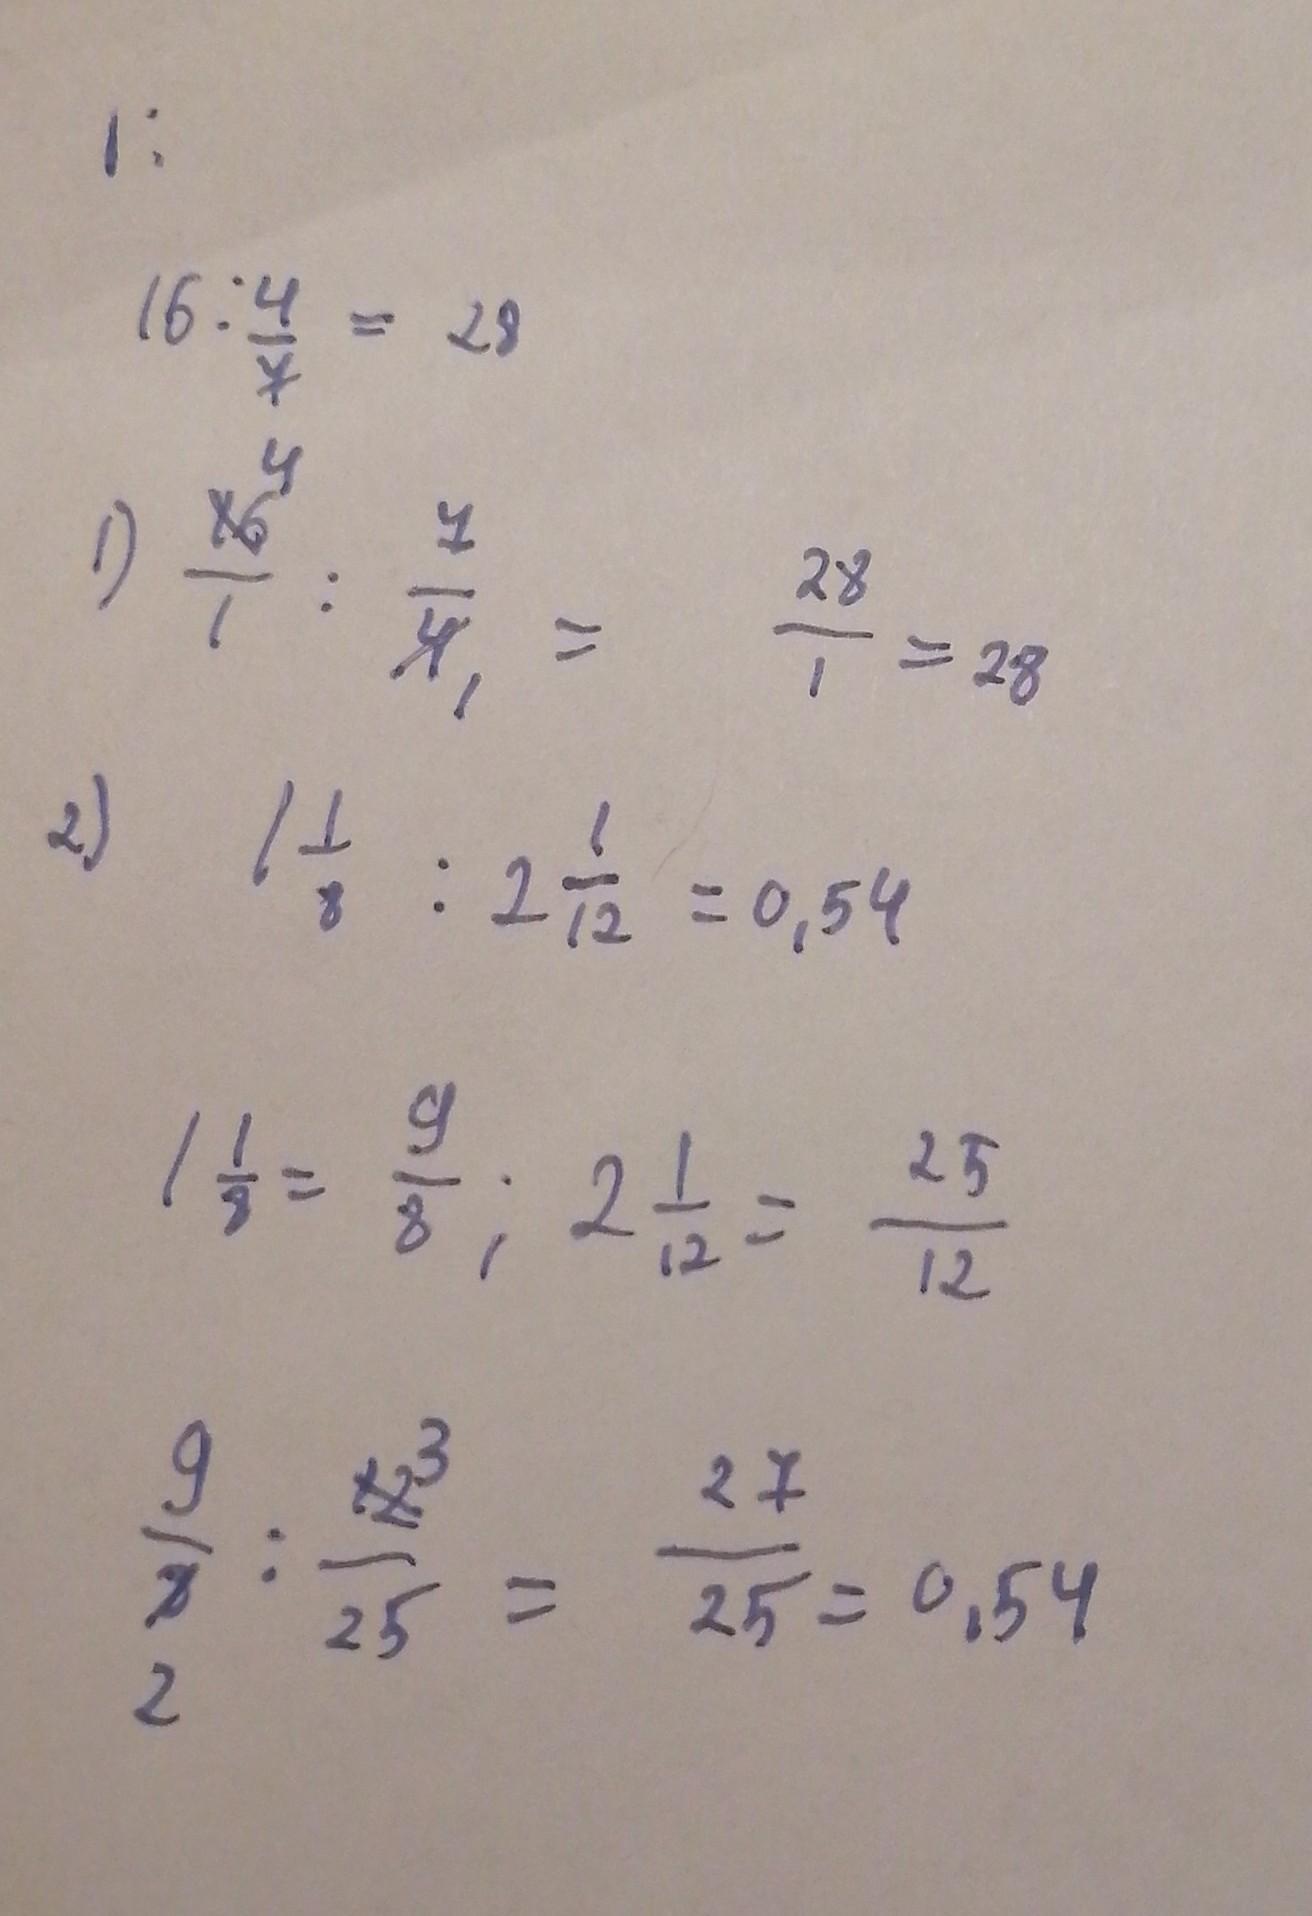 1:
16 : 4/7 = 28
1) 16 4/1 : 7/4 1 = 28/1 = 28
2) 1 1/8 : 2 1/12 = 0,54
1 1/8 = 9/8 ; 2 1/12 = 25/12
9/8 2 : 12 3/25 = 27/25 = 0,54